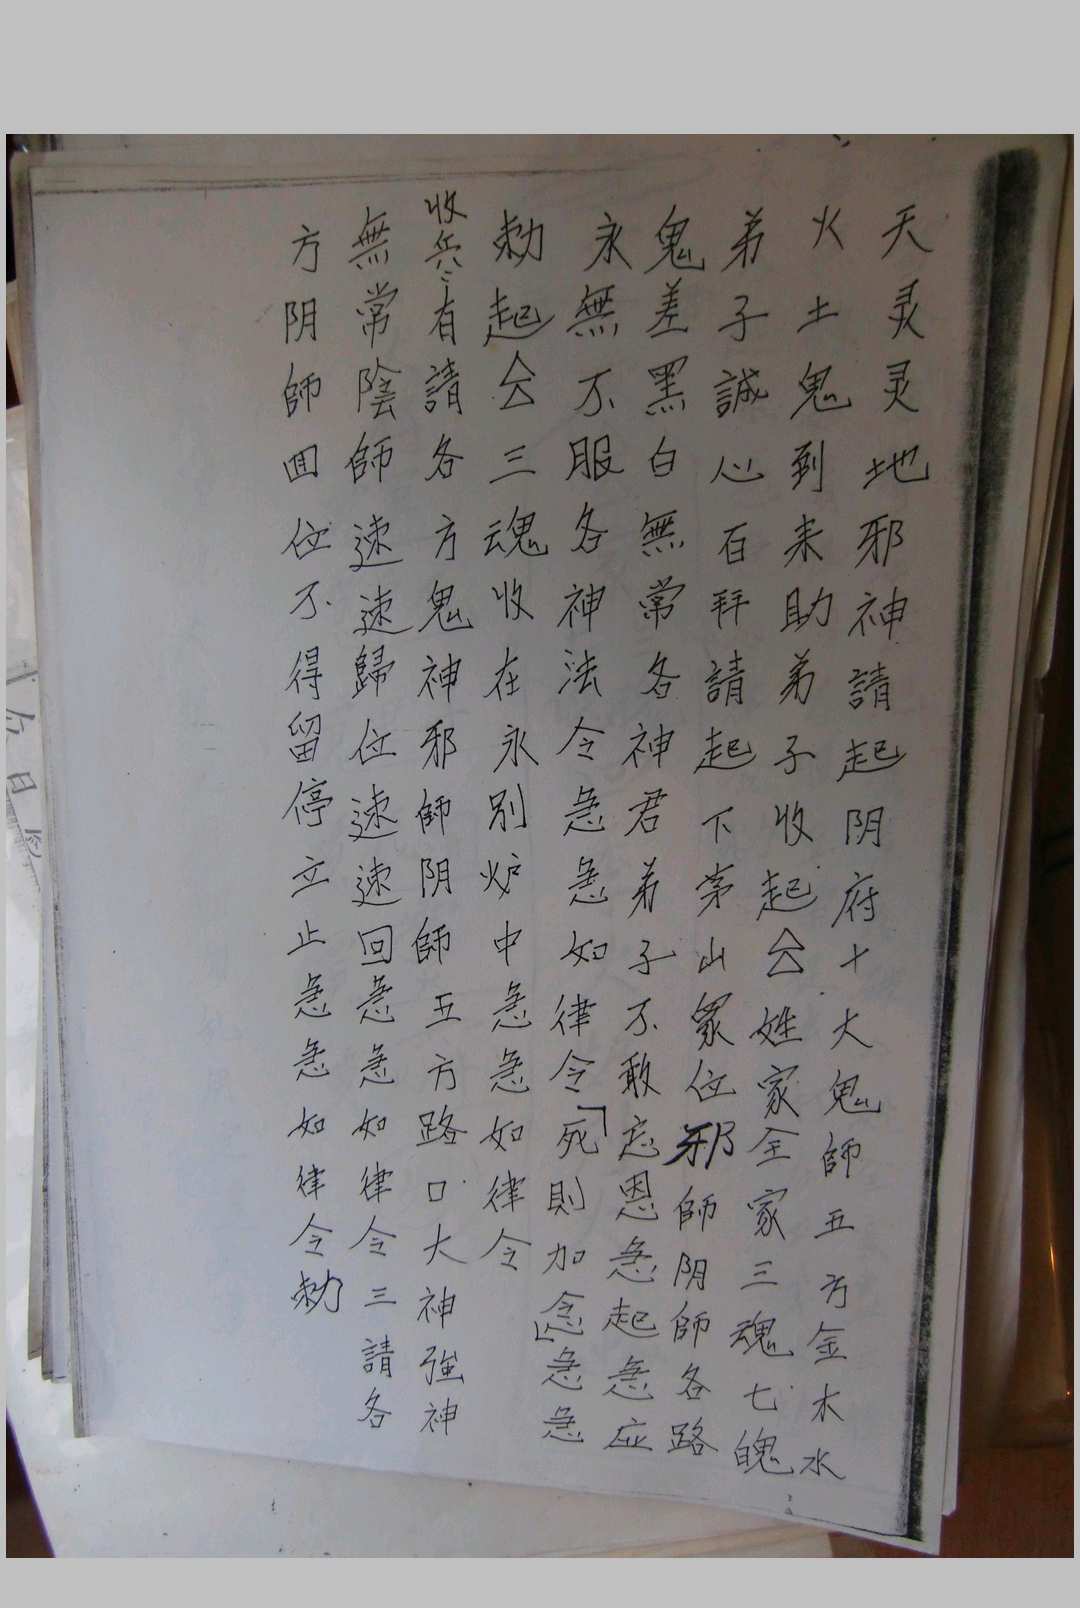 天灵灵地邪神請起阴府十大鬼師五方金木水
火土鬼到来助弟子收起厶姓家全家三魂七魄
弟子誠心百拜請起下茅山眾位邪師阴師各路
鬼差黑白無常各神君弟子不敢忘恩急起急应
永無不服各神法令急急如律令「死則加念」急急
勅起厶三魂收在永別炉中急急如律令
收兵:有請各方鬼神邪師阴師五方路口大神強神
無常陰師速速歸位速速回急急如律令三請各
方阴師回位不得留停立止急急如律令勅
今日